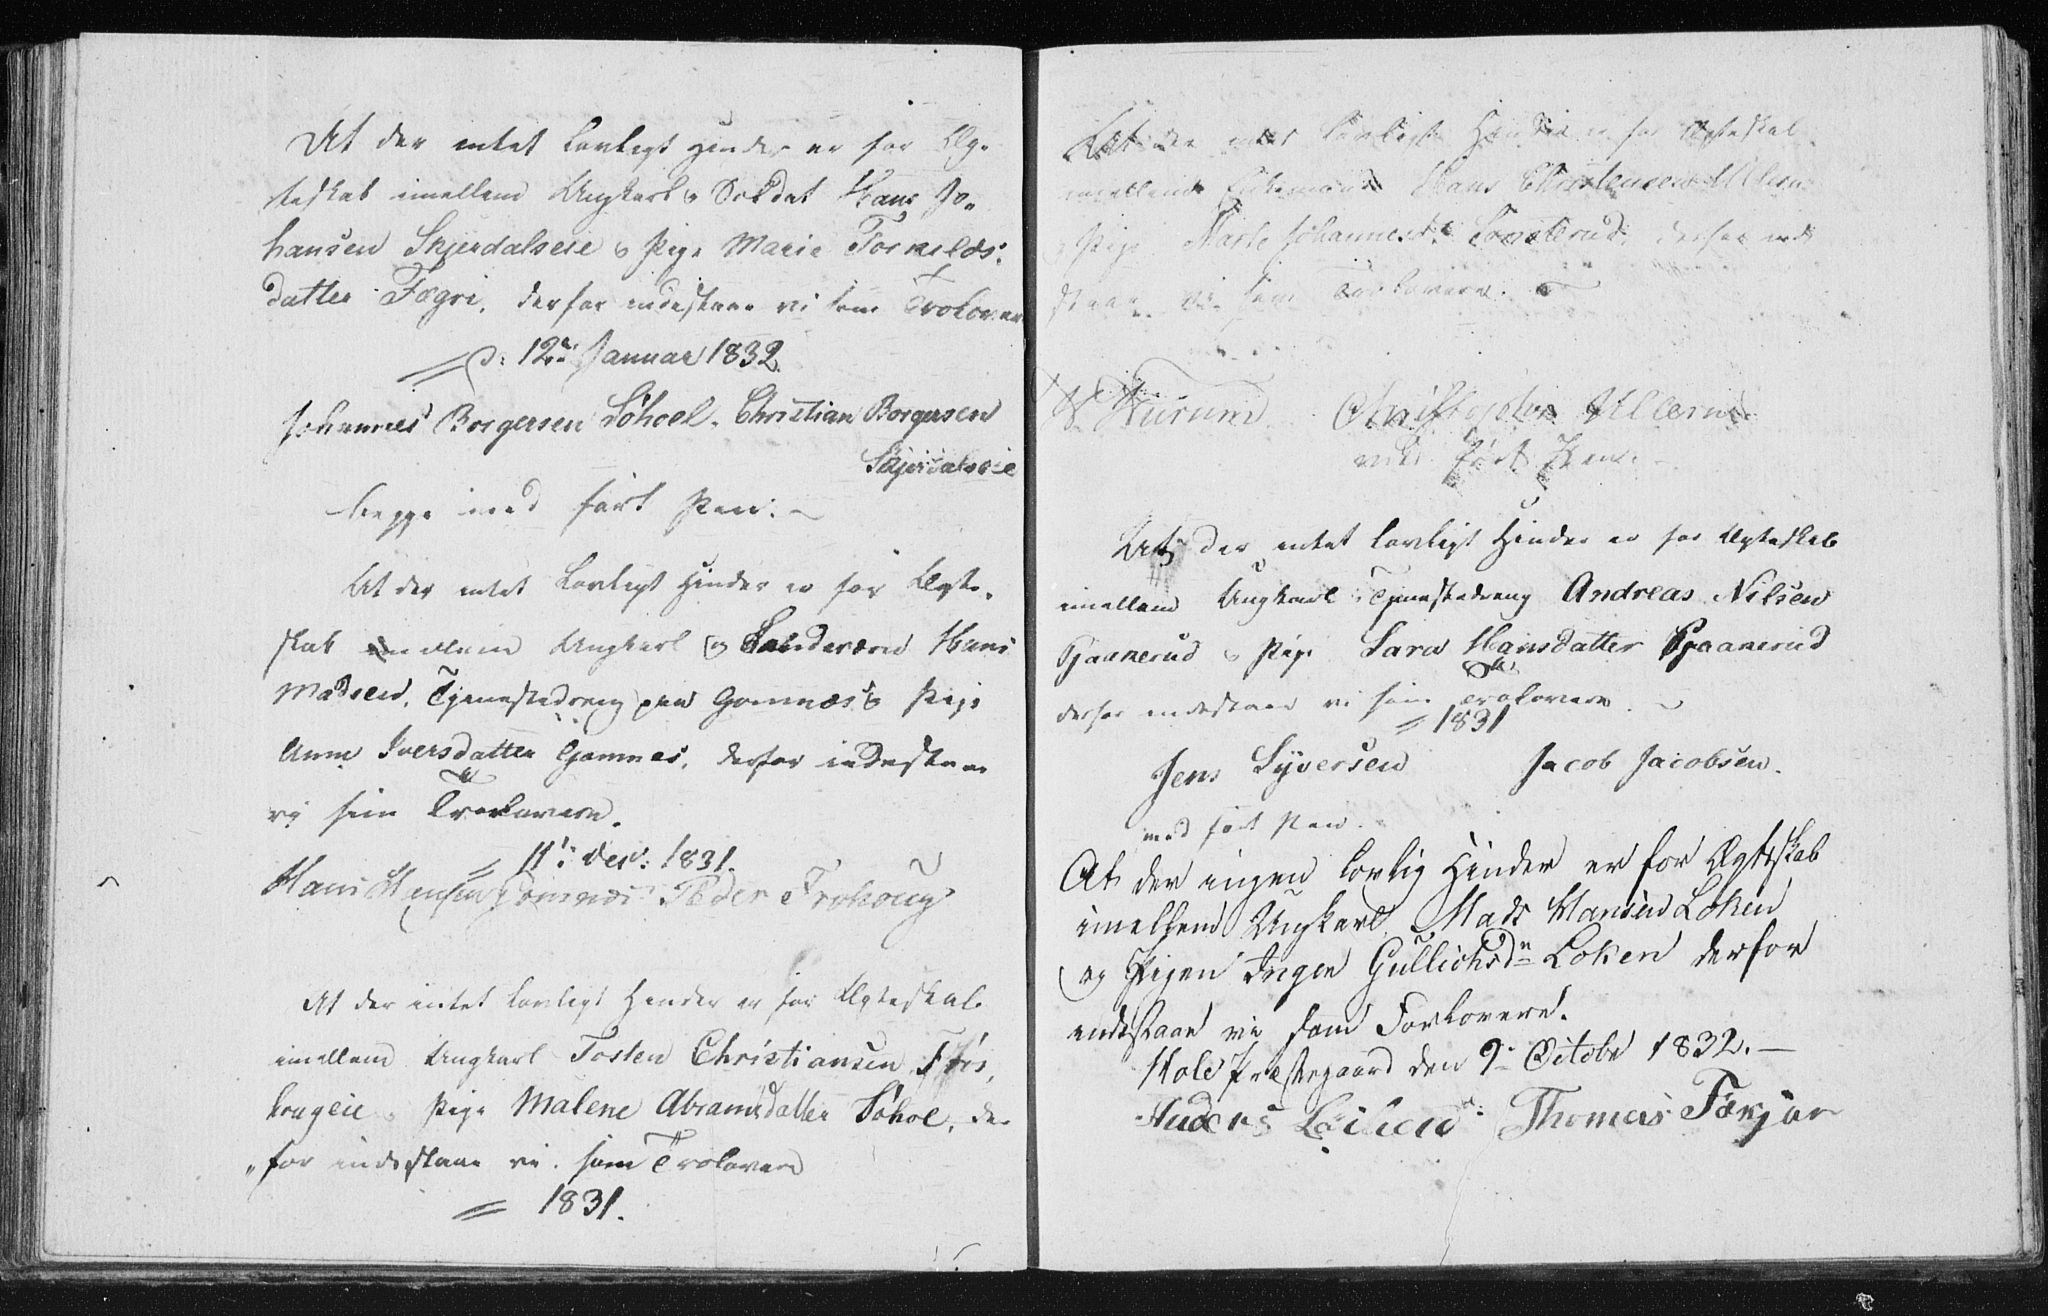 At der intet lovligt Hinder er for Æg-
teskab imellem Ungkarl & Soldat Hans Jo-
hansen Skjerdalseie & Pige Marie Torkilds-
datter Fægri, derfor indestaae vi som Trolovere
d: 12te Januar 1832.
Johannes Borgersen Søhoel. Christian Borgersen
Skjerdalseie
begge med ført Pen.
At der intet Lovligt Hinder er for Ægte-
skab imellem Ungkarl og Landværn Hans
Madsen, Tjenestedreng paa Gomnæs & Pige
Anne Iversdatter Gomnes, derfor indestaae
vi som Trolovere.
11te Decr: 1831.
Hans Hensen Gomnæs Peder Frohoug
At der intet lovligt Hinder er for Ægteskab
imellem Ungkarl Tosten Christiansen
hougeie & Pige Malene Abramsdatter Søhoel, der-
for indestaae vi som Trolovere
1831.
At der intet lovligt Hinder er for Ægteskab
imellem Enkemand Hans Christensen Ullern
& Pige Marte Johannesdr. derfor inde-
staae vi som Trolovere.
Hurum Christopher Ullern
med ført Pen.
At der intet lovligt Hinder er for Ægteskab
imellem Ungkarl Tjenestedreng Andreas Nilsen
Gaanerud & Pige Sara Hansdatter Gaanerud
derfor indestaae vi som Trolovere
1831
Jens Syversen Jacob Jacobsen.
med ført Pen.
At der ingen lovlig Hinder er for Ægteskab
imellem Ungkarl Mads Hansen Løken
og Pigen Inger Gullichsdn Loken derfor
indestaae vi som Forlovere.
Hole Præstegaard den 9de Octobr 1832.
Anders Thomas Færjør